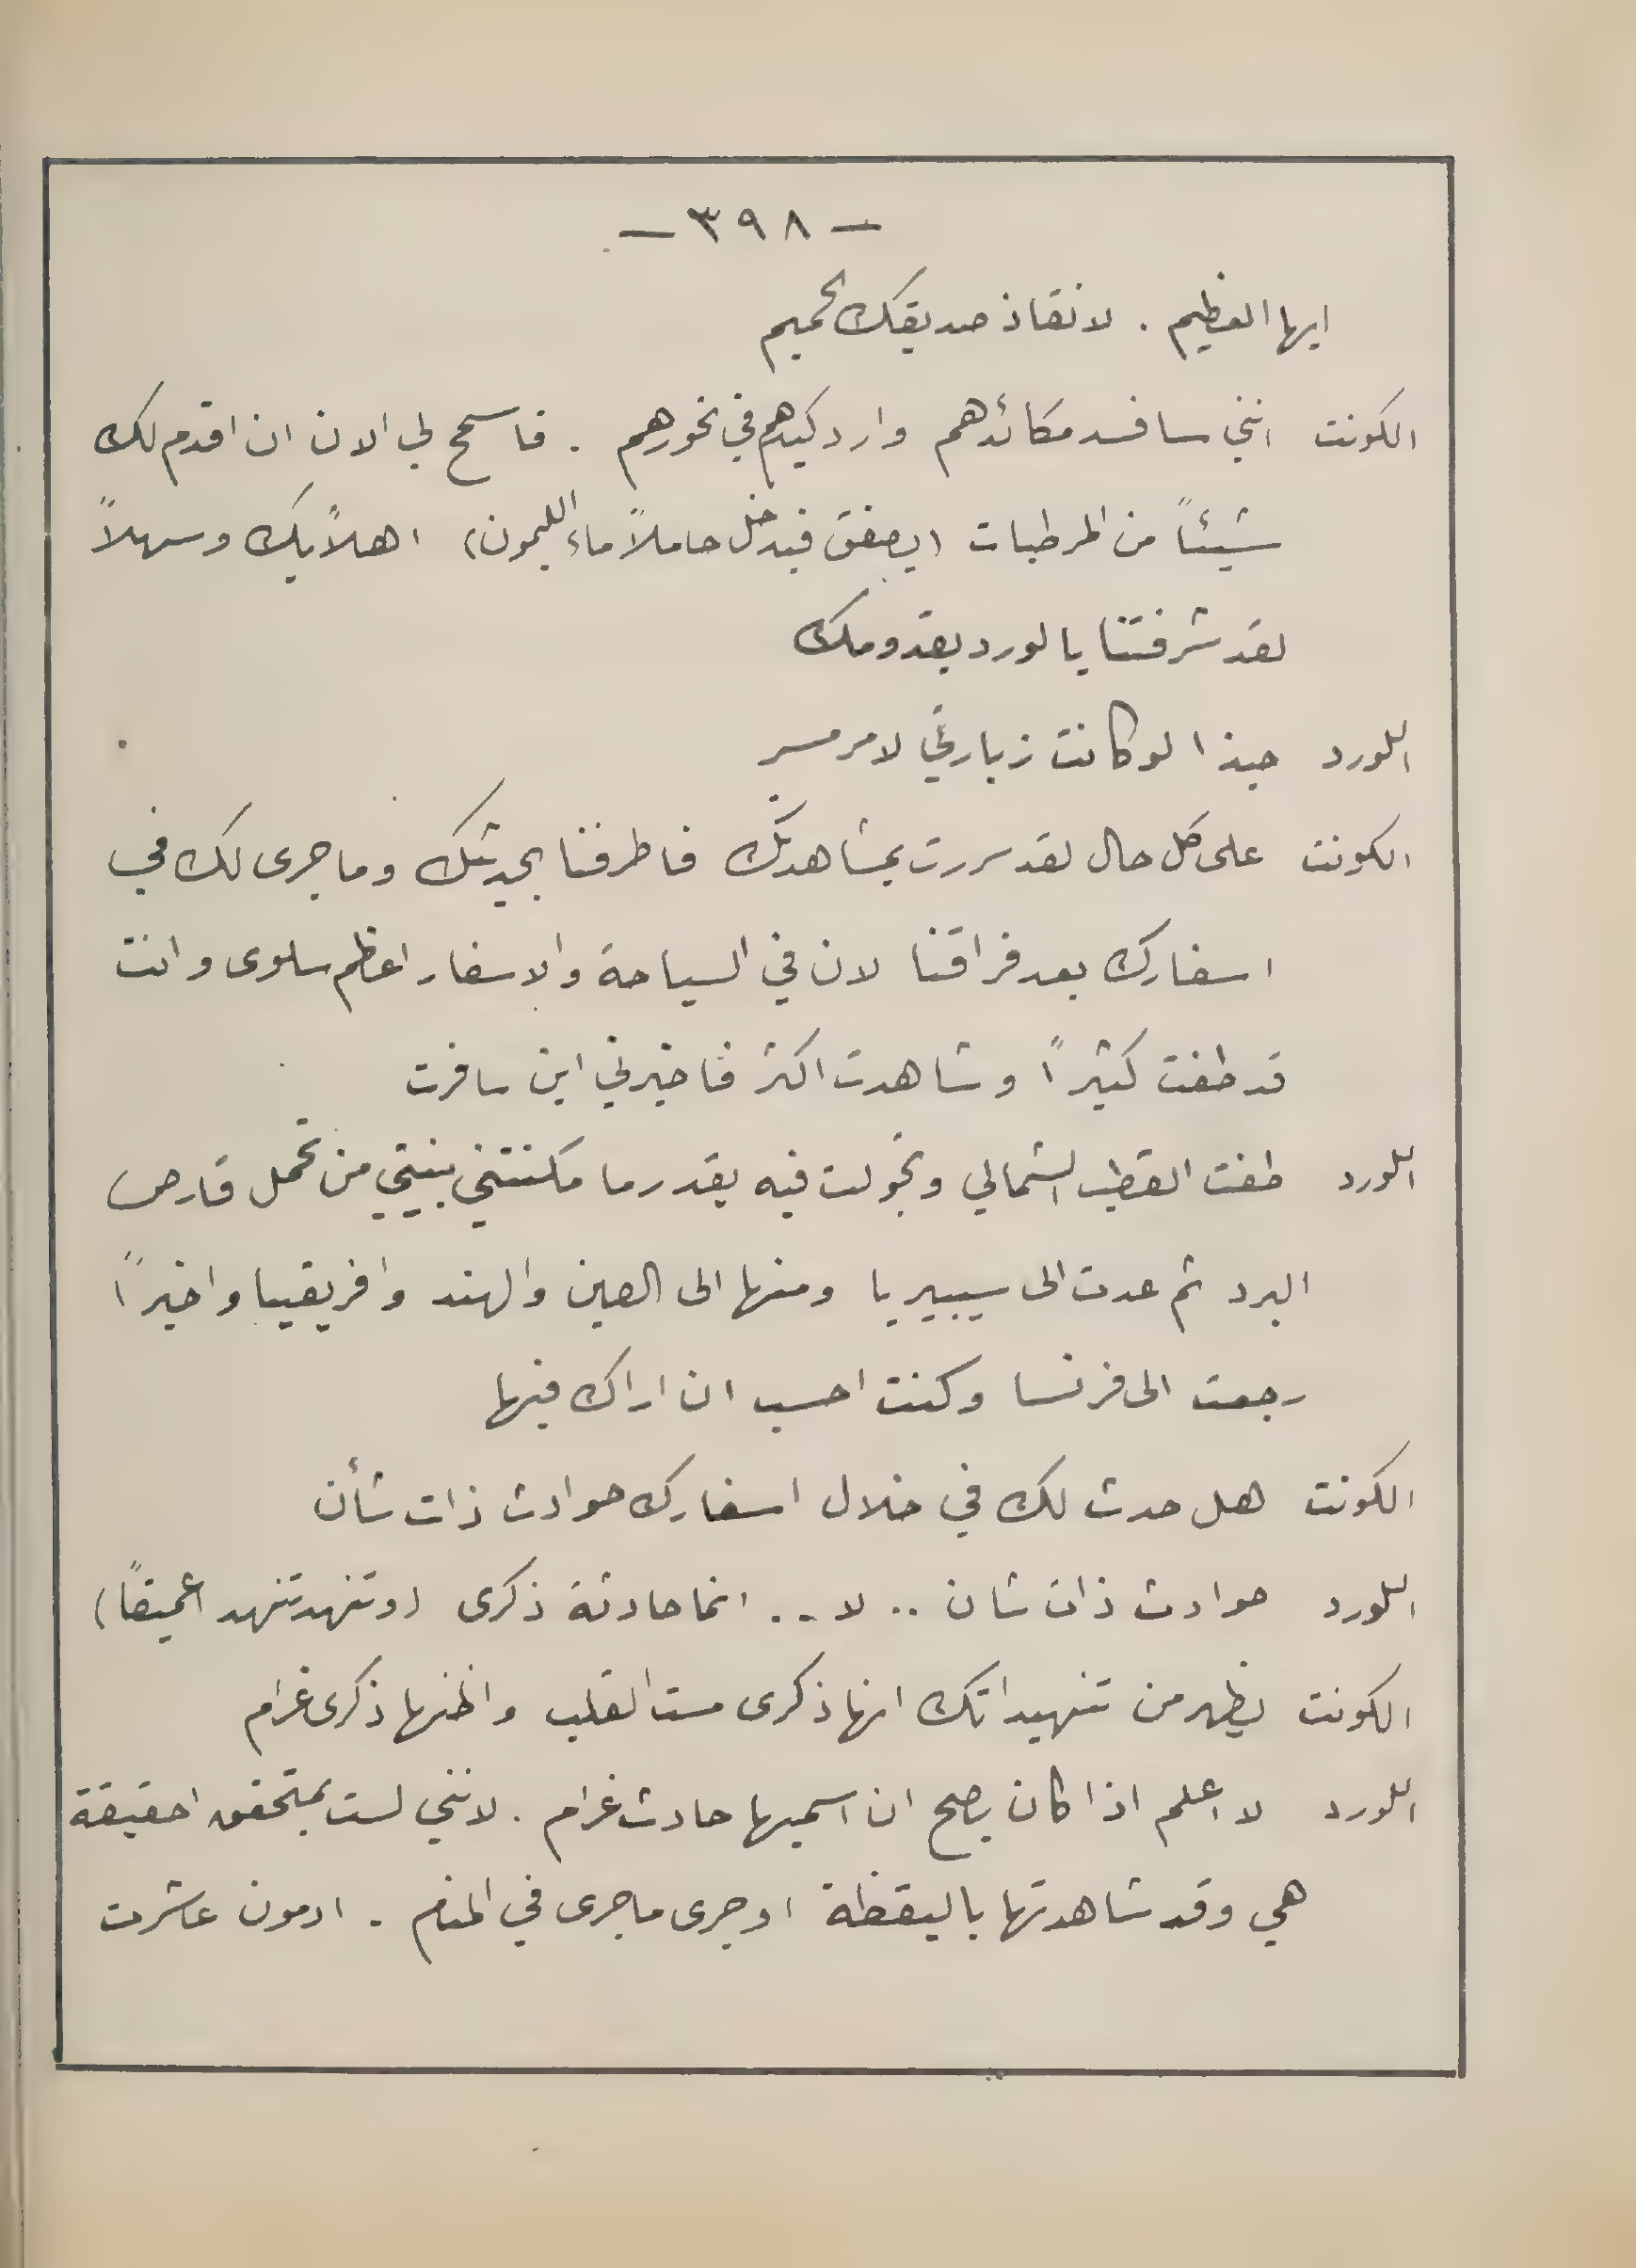 — ٣٩٨ —
ايها العظيم . لانقاذ صديقك الحميم
الكونت انني سافسد مكائدهم وارد كيدهم في نحورهم . فاسمح لي الان ان اقدم لك
شيئاً من المرطبات (يصفق فيدخل حاملاً ماء الليمون) اهلاً بك وسهلاً
لقد شرفتنا يا لورد بقدومك
اللورد حبذا لو كانت زيارتي لامر مسر
الكونت على كل حال لقد سررت بمشاهدتك فاطرفنا بحديثك وما جرى لك في
اسفارك بعد فراقنا لان في السياحة والاسفار اعظم سلوى وانت
قد طفت كثيراً وشاهدت اكثر فاخبرني اين سافرت
اللورد طفت القطب الشمالي وتجولت فيه بقدر ما مكنتني بنيتي من تحمل قارص
البرد ثم عدت الى سيبيريا ومنها الى الصين والهند وافريقيا واخيراً
رجعت الى فرنسا وكنت احسب ان اراك فيها
الكونت هل حدث لك في خلال اسفارك حوادث ذات شأن
اللورد حوادث ذات شان .. لا ... انما حادثة ذكرى (وتنهد تنهد اعميقاً)
الكونت يظهر من تنهيداتك انها ذكرى مست القلب واظنها ذكرى غرام
اللورد لا اعلم اذا كان يصح ان اسميها حادث غرام . لانني لست بمتحقق احقيقة
هي وقد شاهدتها باليقظة اوجرى ماجرى في المنام . ادمون عاشرت